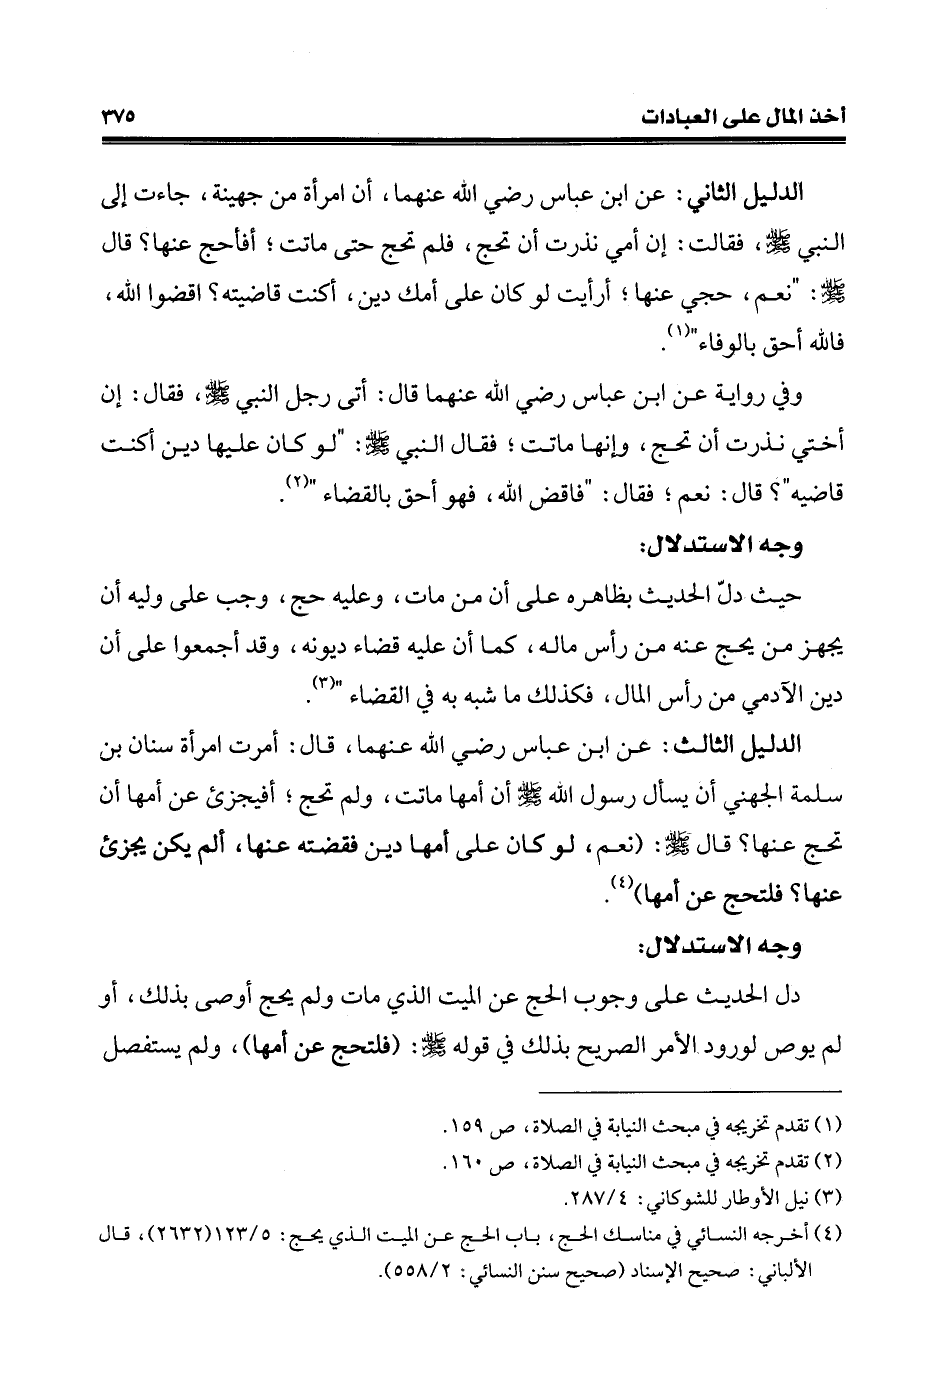 أخذ المال على العبادات ٣٧٥
الدليل الثاني: عن ابن عباس رضي الله عنهما، أن امرأة من جهينة، جاءت إلى
النبي ﷺ، فقالت: إن أمي نذرت أن تحج، فلم تحج حتى ماتت؛ أفأحج عنها؟ قال
ﷺ: "نعم، حجي عنها؛ أرأيت لو كان على أمك دين، أكنت قاضيته؟ اقضوا الله،
فالله أحق بالوفاء"(١).
وفي رواية عن ابن عباس رضي الله عنهما قال: أتى رجل النبي ﷺ، فقال: إن
أختي نذرت أن تحج، وإنها ماتت؛ فقال النبي ﷺ: "لو كان عليها دين أكنت
قاضيه"؟ قال: نعم؛ فقال: "فاقض الله، فهو أحق بالقضاء"(٢).
وجه الاستدلال:
حيث دلّ الحديث بظاهره على أن من مات، وعليه حج، وجب على وليه أن
يجهز من يحج عنه من رأس ماله، كما أن عليه قضاء ديونه، وقد أجمعوا على أن
دين الآدمي من رأس المال، فكذلك ما شبه به في القضاء"(٣).
الدليل الثالث: عن ابن عباس رضي الله عنهما، قال: أمرت امرأة سنان بن
سلمة الجهني أن يسأل رسول الله ﷺ أن أمها ماتت، ولم تحج؛ أفيجزئ عن أمها أن
تحج عنها؟ قال ﷺ: (نعم، لو كان على أمها دين فقضته عنها، ألم يكن يجزئ
عنها؟ فلتحج عن أمها)(٤).
وجه الاستدلال:
دل الحديث على وجوب الحج عن الميت الذي مات ولم يحج أوصى بذلك، أو
لم يوص لورود الأمر الصريح بذلك في قوله ﷺ: (فلتحج عن أمها)، ولم يستفصل
(١) تقدم تخريجه في مبحث النيابة في الصلاة، ص ١٥٩.
(٢) تقدم تخريجه في مبحث النيابة في الصلاة، ص ١٦٠.
(٣) نيل الأوطار للشوكاني: ٢٨٧/٤.
(٤) أخرجه النسائي في مناسك الحج، باب الحج عن الميت الذي يحج: ١٢٣/٥(٢٦٣٢)، قال
الألباني: صحيح الإسناد (صحيح سنن النسائي: ٥٥٨/٢).